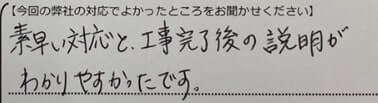 【今回の弊社の対応でよかったところをお聞かせください】
素早い対応と、工事完了後の説明が
わかりやすかったです。